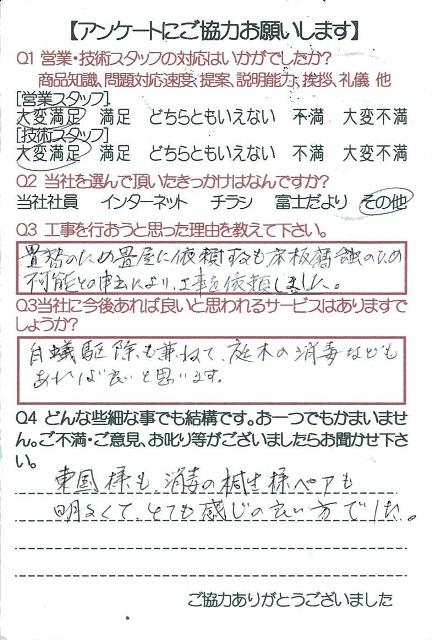 【アンケートにご協力お願いします】
Q1 営業・技術スタッフの対応はいかがでしたか?
商品知識、問題対応速度、提案、説明能力、挨拶、礼儀 他
[営業スタッフ]
大変満足 満足 どちらともいえない 不満 大変不満
[技術スタッフ]
大変満足 満足 どちらともいえない 不満 大変不満
Q2 当社を選んで頂いたきっかけはなんですか?
当社社員 インターネット チラシ 富士だより その他
Q3 工事を行おうと思った理由を教えて下さい。
畳替のため畳屋に依頼するも床板腐蝕のため
不可能との申出により、工事を依頼しました。
Q3当社に今後あれば良いと思われるサービスはありますで
しょうか?
白蟻駆除も兼ねて、庭木の消毒なども
あれば良いと思います。
Q4 どんな些細な事でも結構です。お一つでもかまいませ
ん。ご不満・ご意見、お叱り等がございましたらお聞かせ下さ
い。
東国様も、消毒の桐生様ペアも
明るくて、とても感じの良い方でした。
ご協力ありがとうございました